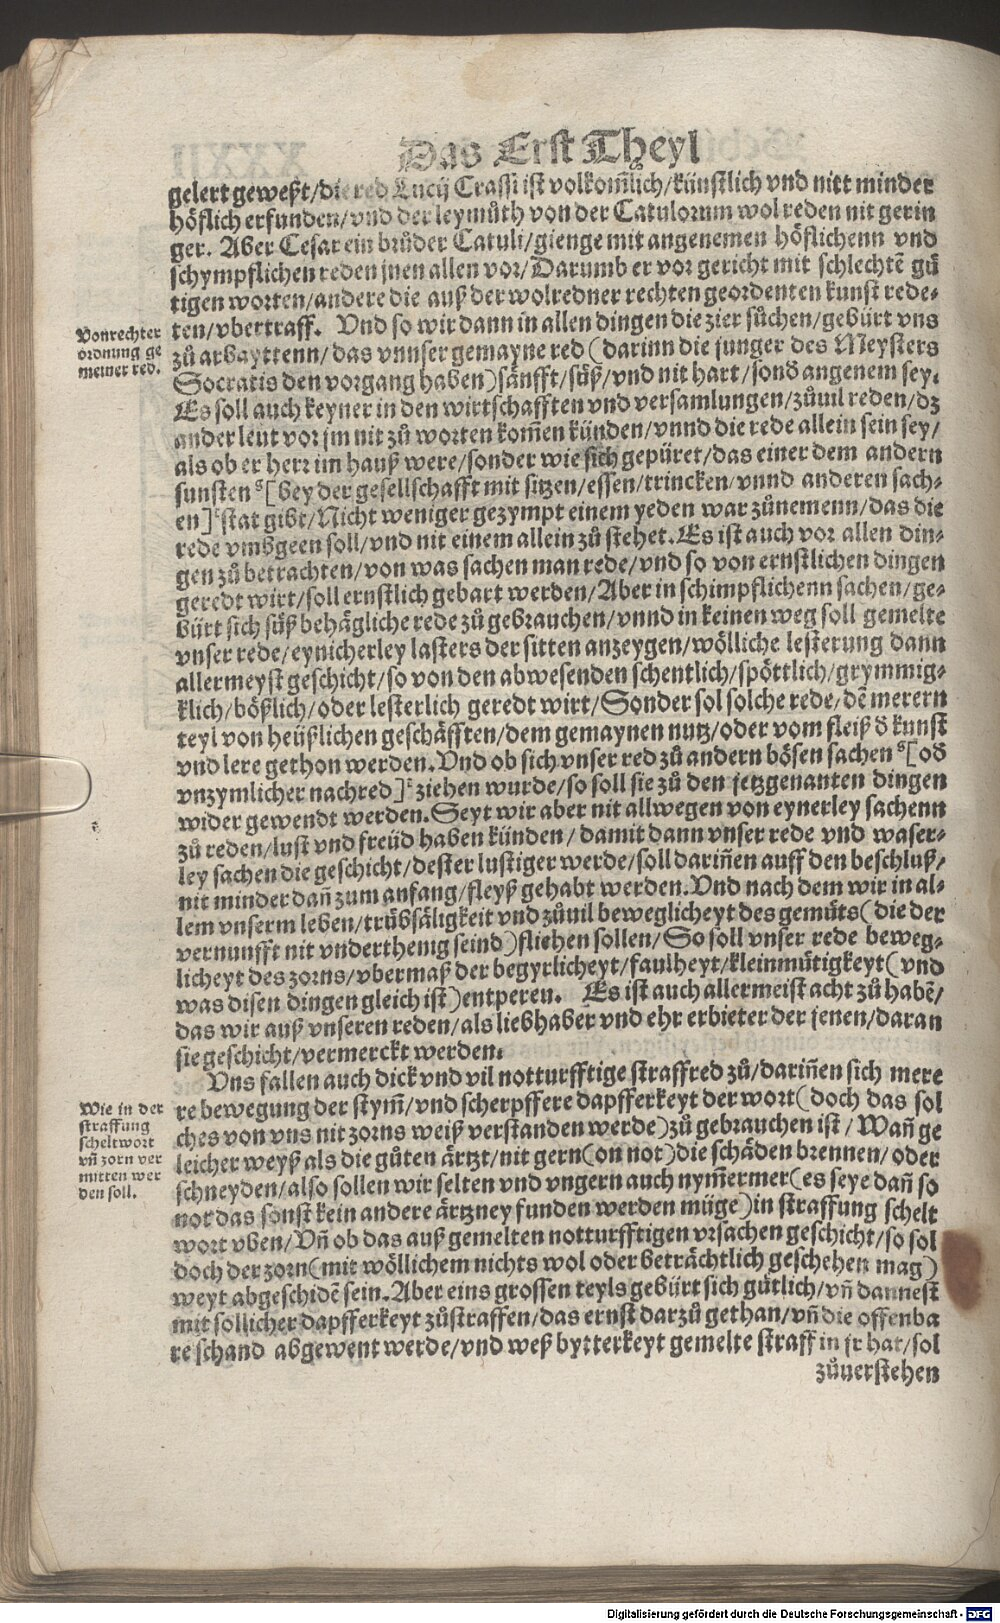 Das Erst Theyl
gelert geweßt/die red Lucij Crassi ist volkom̃lich/künstlich vnd nitt minder
höflich erfunden/vnd der leymůth von der Catulorum wol reden nit gerin
ger. Aber Cesar ein brůder Catuli/gienge mit angenemen höflichenn vnd
schympflichen reden jnen allen vor/Darumb er vor gericht mit schlechtẽ gü
tigen worten/andere die auß der wolredner rechten geordenten kunst rede-
ten/vbertraff. Vnd so wir dann in allen dingen die zier sůchen/gebürt vns
Vonrechter
ordnung ge
meiner red.
zů arbayttenn/das vnnser gemayne red (darinn die junger des Meysters
Socratis den vorgang haben)sänfft/süß/vnd nit hart/sonð angenem sey.
Es soll auch keyner in den wirtschafften vnd versamlungen/zůuil reden/dz
ander leut vor jm nit zů worten kom̃en künden/vnnd die rede allein sein sey/
als ob er herr im hauß were/sonder wie sich gepüret/das einer dem andern
sunsten [bey der gesellschafft mit sitzen/essen/trincken/vnnd anderen sach-
en] stat gibt/Nicht weniger gezympt einem yeden war zůnemenn/das die
rede vmbgeen soll/vnd nit einem allein zů stehet. Es ist auch vor allen din-
gen zů betrachten/von was sachen man rede/vnd so von ernstlichen dingen
geredt wirt/soll ernstlich gebart werden/Aber in schimpflichenn sachen/ge-
bürt sich süß behägliche rede zů gebrauchen/vnnd in keinen weg soll gemelte
vnser rede/eynicherley lasters der sitten anzeygen/wölliche lesterung dann
allermeyst geschicht/so von den abwesenden schentlich/spöttlich/grymmig-
klich/bößlich/oder lesterlich geredt wirt/Sonder sol solche rede/dẽ merern
teyl von heüßlichen geschäfften/dem gemaynen nutz/oder vom fleiß ð kunst
vnd lere gethon werden. Vnd ob sich vnser red zů andern bösen sachen [oð
vnzymlicher nachred] ziehen wurde/so soll sie zů den jetzgenanten dingen
wider gewendt werden. Seyt wir aber nit allwegen von eynerley sachenn
zů reden/lust vnd freüd haben künden/damit dann vnser rede vnd waser-
ley sachen die geschicht/dester lustiger werde/soll dariñen auff den beschluß/
nit minder dañ zum anfang/fleyß gehabt werden. Vnd nach dem wir in al-
lem vnserm leben/trübsäligkeit vnd zůuil beweglicheyt des gemüts(die der
vernunfft nit vnderthenig seind)fliehen sollen/So soll vnser rede beweg-
licheyt des zorns/vbermaß der begyrlicheyt/faulheyt/kleinmütigkeyt(vnd
was disen dingen gleich ist)entperen. Es ist auch allermeist acht zů habẽ/
das wir auß vnseren reden/als liebhaber vnd ehr erbieter der jenen/daran
sie geschicht/vermerckt werden.
Vns fallen auch dick vnd vil notturfftige straffred zů/dariñen sich mere
Wie in der
straffung
scheltwort
vñ zorn ver
mitten wer
den soll.
re bewegung der stym̃/vnd scherpffere dapfferkeyt der wort(doch das sol
ches von vns nit zorns weiß verstanden werde)zů gebrauchen ist/Wañ ge
leicher weyß als die gůten ärtzt/nit gern(on not)die schäden brennen/oder
schneyden/also sollen wir selten vnd vngern auch nym̃ermer(es seye dañ so
not das sonst kein andere ärtzney funden werden müge)in straffung schelt
wort vben/Vñ ob das auß gemelten notturfftigen vrsachen geschicht/so sol
doch der zorn(mit wöllichem nichts wol oder beträchtlich geschehen mag)
weyt abgeschidẽ sein. Aber eins grossen teyls gebürt sich gütlich/vñ dannest
mit sollicher dapfferkeyt zůstraffen/das ernst darzů gethan/vñ die offenba
re schand abgewent werde/vnd weß bytterkeyt gemelte straff in jr hat/sol
zůuerstehen
Digitalisierung gefördert durch die Deutsche Forschungsgemeinschaft - DFG